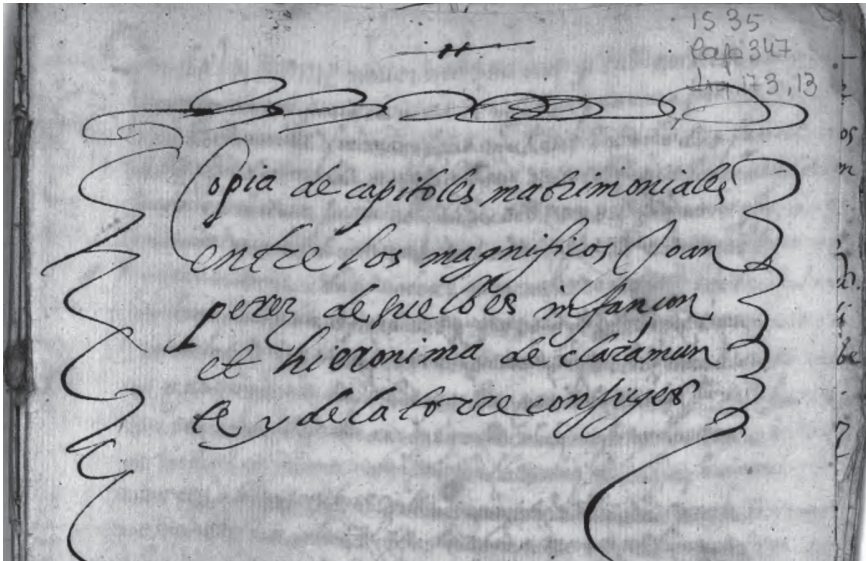 IS 35
347
173, 13
Copia de capitoles matrimoniales
entre los magnificos Joan
perez de huelbes infançon
et hieronima de claramun
te y de la torre conjuges